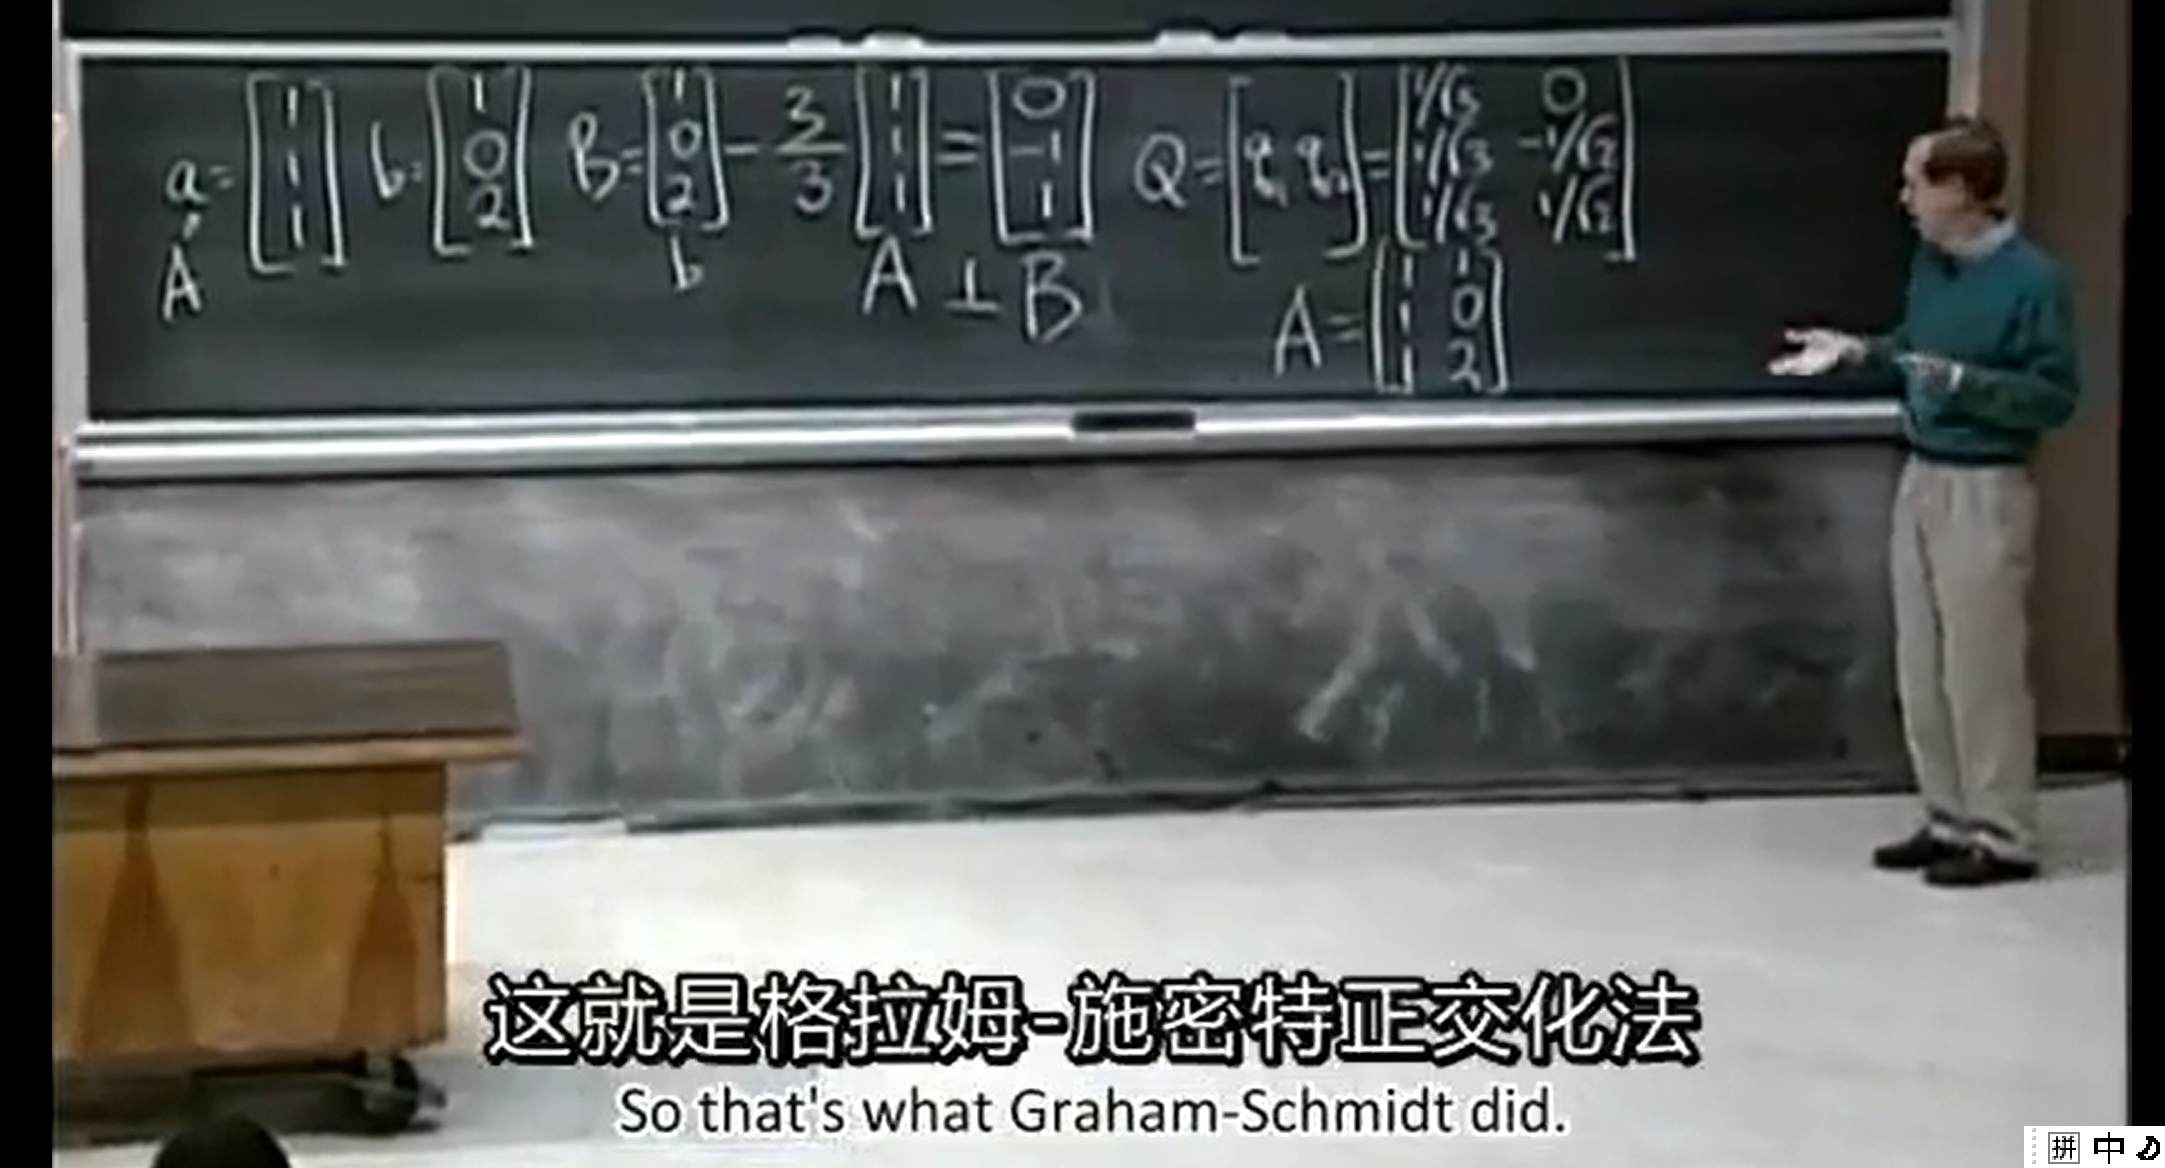 a = [1 1 1] b = [1 0 2] B = [1 0 2] - 3/3 [1 1 1] = [0 -1 1] Q = [q₁ q₂] = [1/√3 0 1/√3 -1/√2 1/√3 1/√2]
A b A ⊥ B A = [1 1 1 0 1 2]
这就是格拉姆-施密特正交化法
So that's what Graham-Schmidt did.
拼 中